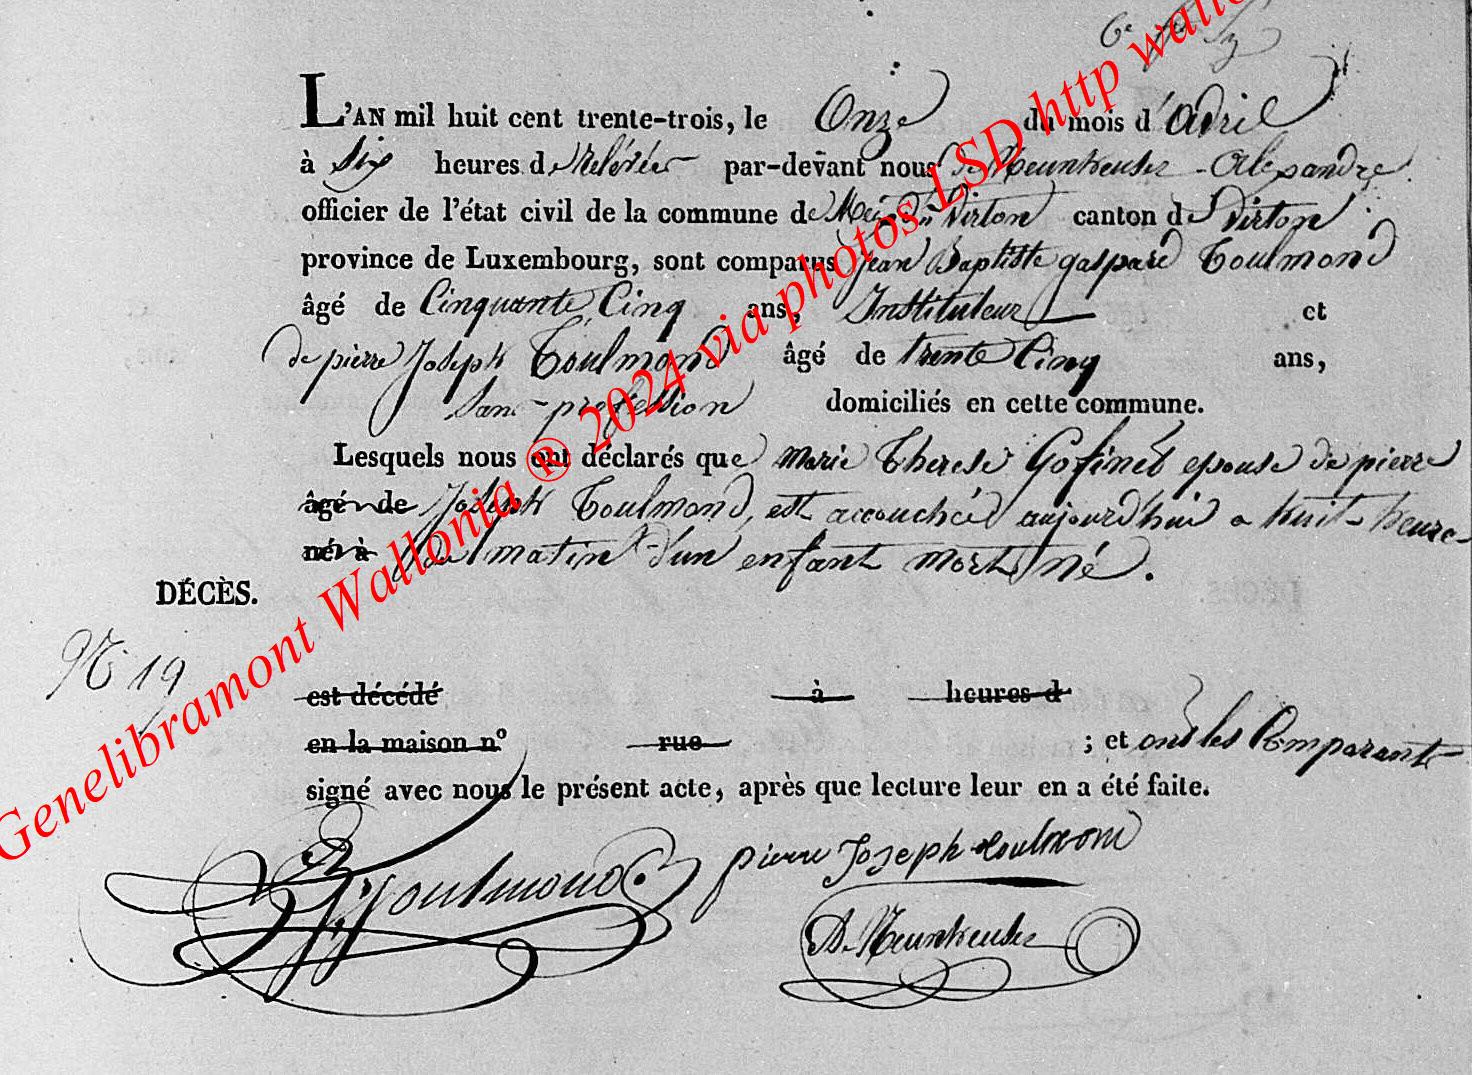 L'AN mil huit cent trente-trois, le Onze du mois d'avril
à Six heures de Relevée par-devant nous de Neunheuser Alexandre
officier de l'état civil de la commune de Virton canton de Virton
province de Luxembourg, sont comparus Jean Baptiste gaspard Toulmond
âgé de Cinquante Cinq ans, Instituteur et
de pierre Joseph Toulmond âgé de trente Cinq ans,
Sans profession domiciliés en cette commune.
Lesquels nous ont déclarés que marie Therese Gofinet epouse de pierre
âgé de Joseph Toulmond, est accouchée aujourd'hui a huit heure
né à du matin d'un enfant mort né.
DÉCÈS.
N 19
est décédé à heures d
en la maison nº rue ; et ont les Comparants
signé avec nous le présent acte, après que lecture leur en a été faite.
Toulmond pierre Joseph toulmond
A. Neunheuser
Genelibramont Wallonia ® 2024 via photos LSD http